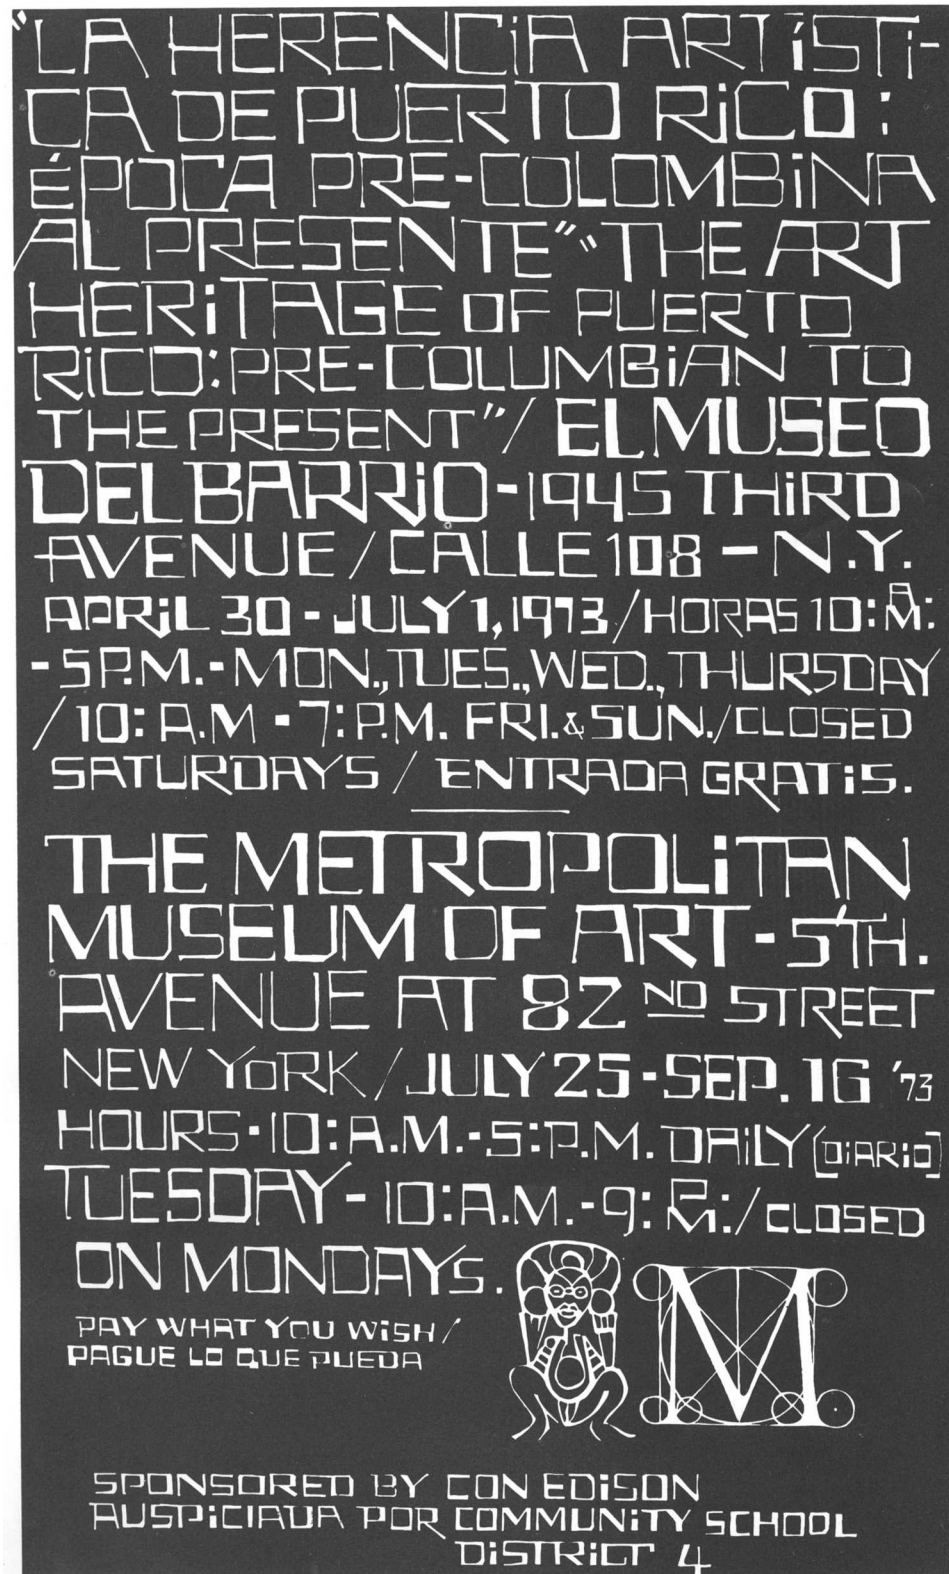 "LA HERENCiA ARTíSTi-
CA DE PUERTO RiCO:
ÉPOCA PRE-COLOMBiNA
AL PRESENTE" "THE ART
HERiTAGE OF PUERTO
RiCO: PRE-COLUMBiAN TO
THE PRESENT" / EL MUSEO
DEL BARRiO - 1945 THiRD
AVENUE / CALLE 108 - N.Y.
APRiL 30 - JULY 1, 1973 / HORAS 10: A.M:
- 5 P.M. - MON., TUES., WED., THURSDAY
/ 10: A.M - 7: P.M. FRI. & SUN. / CLOSED
SATURDAYS / ENTRADA GRATiS.
THE METROPOLiTAN
MUSEUM OF ART - 5'TH.
AVENUE AT 82 ND STREET
NEW YORK / JULY 25 - SEP. 16 '73
HOURS - 10: A.M. - 5: P.M. DAiLY [DiARiO]
TUESDAY - 10: A.M. - 9: P.M: / CLOSED
ON MONDAYS.
PAY WHAT YOU WiSH /
PAGUE LO QUE PUEDA
M
SPONSORED BY CON EDiSON
AUSPiCIADA POR COMMUNiTY SCHOOL
DiSTRiCT 4